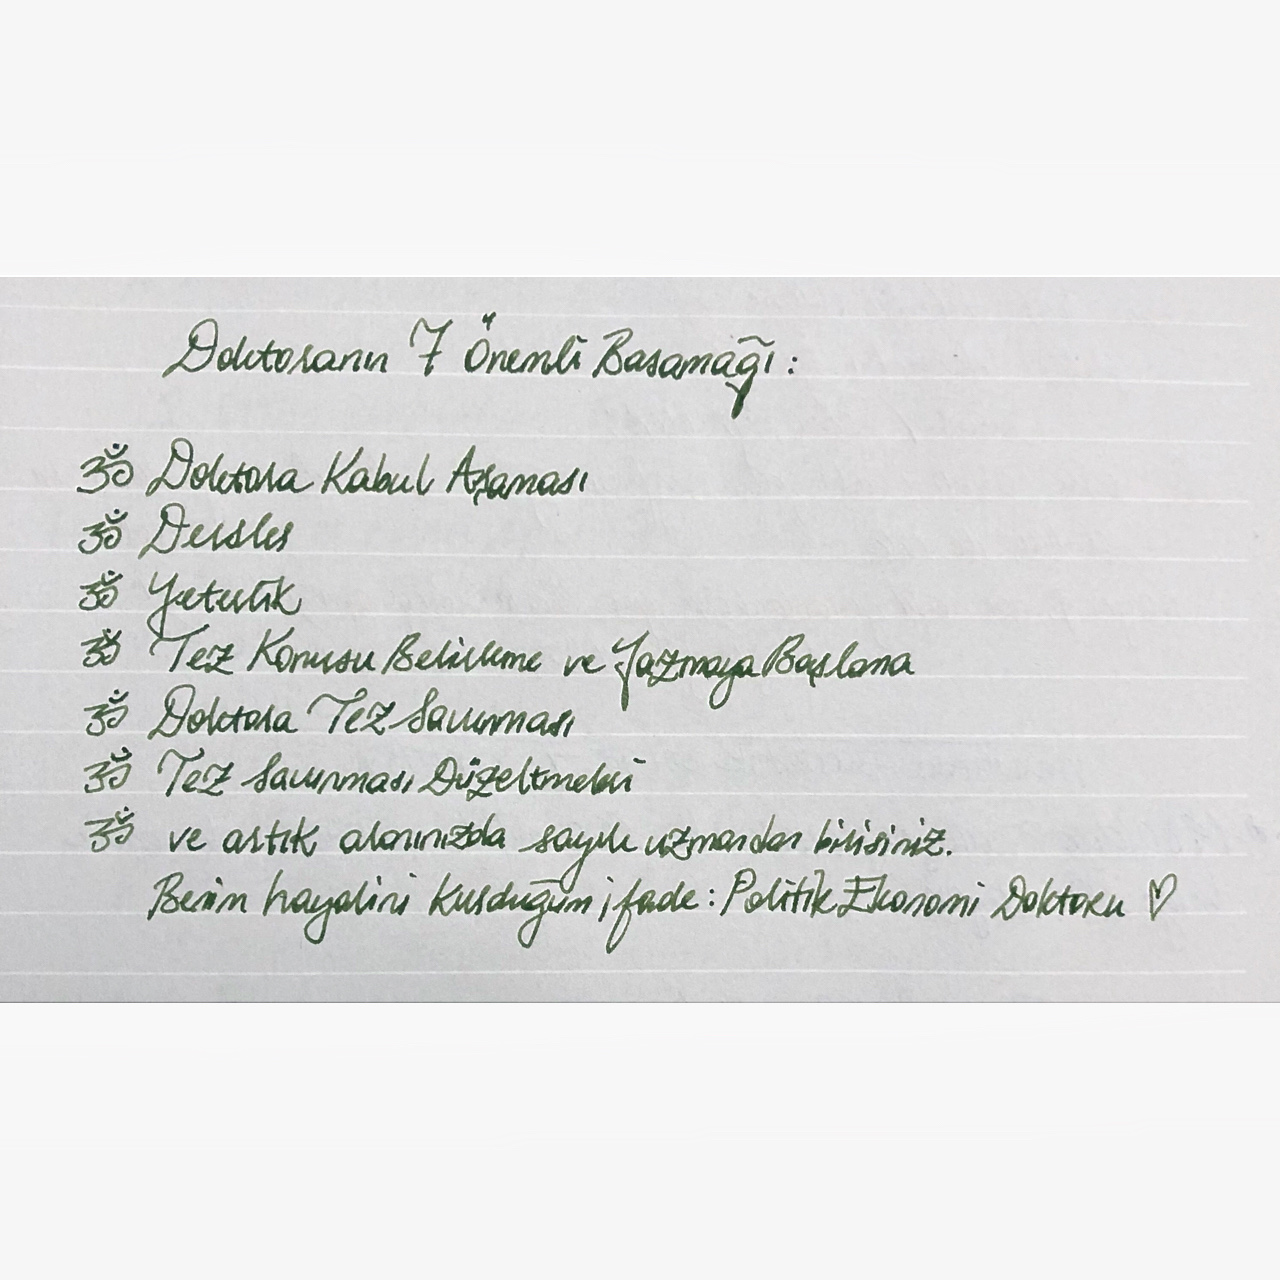 Doktoranın 7 Önemli Basamağı:
ॐ Doktora Kabul Aşaması
ॐ Dersler
ॐ Yeterlik
ॐ Tez Konusu Belirleme ve Yazmaya Başlama
ॐ Doktora Tez Savunması
ॐ Tez Savunması Düzeltmeleri
ॐ ve artık alanınızda sayılı uzmandan birisiniz.
Benim hayalini kurduğum ifade: Politik Ekonomi Doktoru ♡